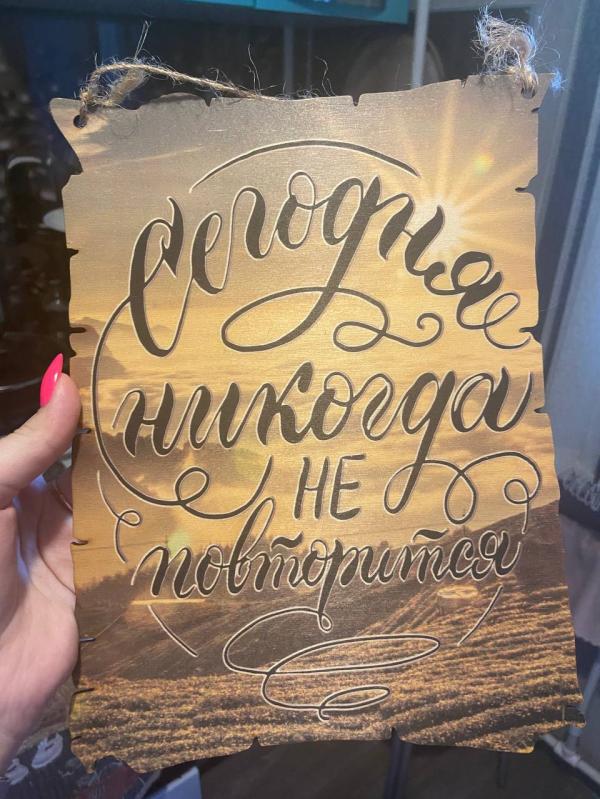 Сегодня
никогда
НЕ
повторится